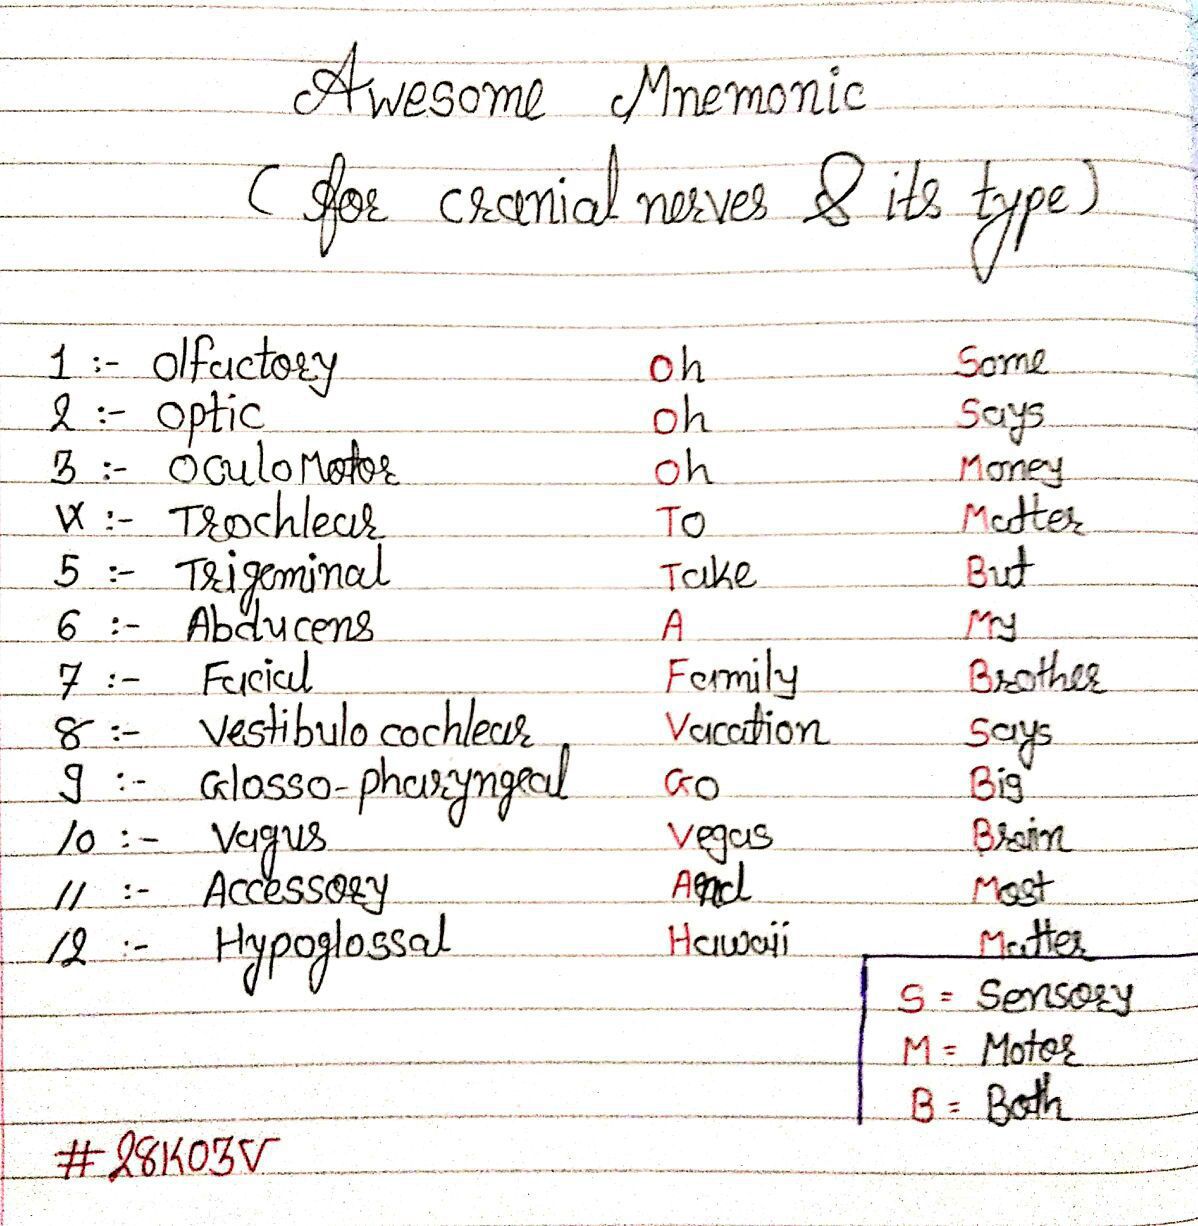 Awesome Mnemonic
(for cranial nerves & its type)
1 :- Olfactory Oh Some
2 :- Optic Oh Says
3 :- OculoMotor Oh Money
4 :- Trochlear To Matter
5 :- Trigeminal Take But
6 :- Abducens A My
7 :- Facial Family Brother
8 :- Vestibulo cochlear Vacation Says
9 :- Glosso-pharyngeal Go Big
10 :- Vagus Vegas Brain
11 :- Accessory And Most
12 :- Hypoglossal Hawaii Matter
S = Sensory
M = Motor
B = Both
#28K03V